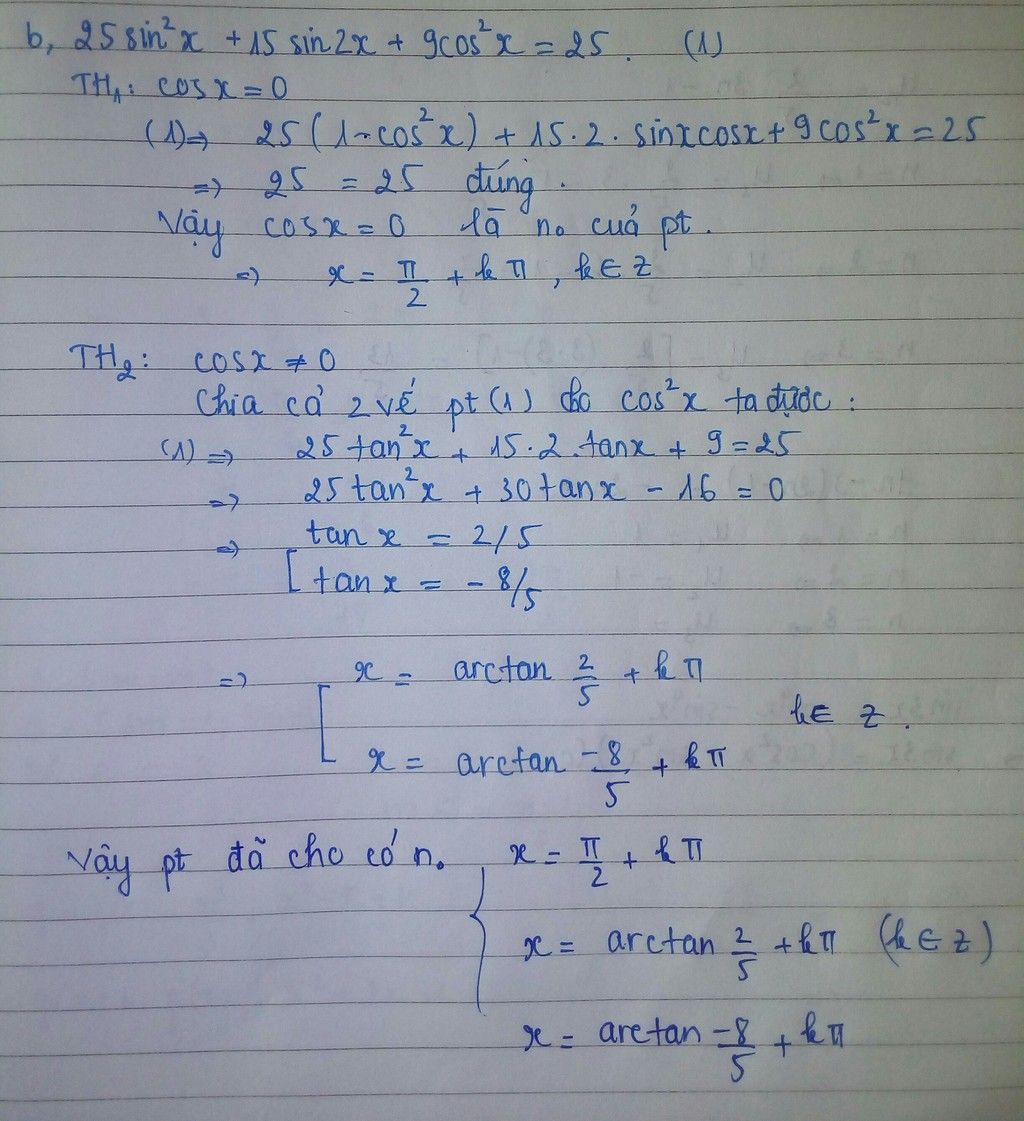 b, 25 sin²x + 15 sin2x + 9cos²x = 25. (1)
TH₁: cosx = 0
(1) => 25(1-cos²x) + 15.2. sinxcosx + 9cos²x = 25
=> 25 = 25 đúng.
Vậy cosx = 0 là n₀ cuả pt.
=> x = π/2 + kπ, k ∈ z
TH₂: cosx ≠ 0
Chia cả 2 vế pt(1) cho cos²x ta được:
(1) => 25 tan²x + 15.2.tanx + 9 = 25
=> 25tan²x + 30tanx - 16 = 0
=> [ tanx = 2/5
tanx = -8/5
=> [ x = arctan 2/5 + kπ
k ∈ z.
x = arctan -8/5 + kπ
Vậy pt đã cho có n₀ { x = π/2 + kπ
x = arctan 2/5 + kπ (k ∈ z)
x = arctan -8/5 + kπ